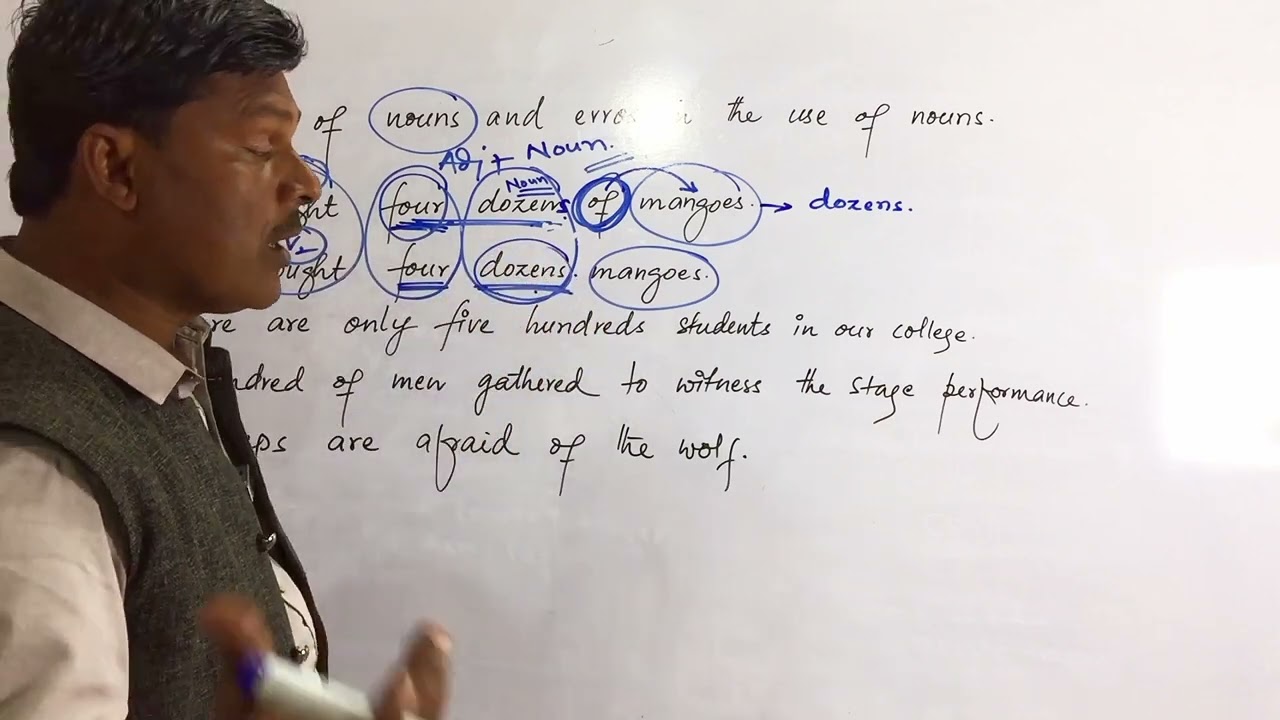 of nouns and erro in the use of nouns.
Adj + Noun.
Noun
ght four dozens of mangoes. → dozens.
ought four dozens. mangoes.
re are only five hundreds students in our college.
ndred of men gathered to witness the stage performance.
eps are afraid of the wolf.